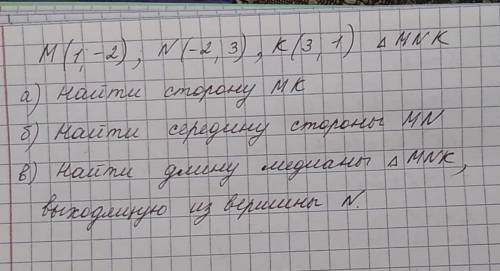 M(1; -2), N(-2; 3), K(3; 1) △MNK
а) Найти сторону MK
б) Найти середину стороны MN
в) Найти длину медианы △MNK,
выходящую из вершины N.